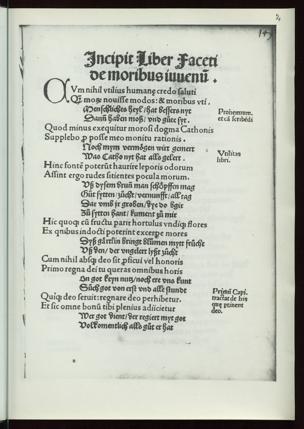 Incipit Liber Faceti
de moribus iuuenū.
CVm nihil vtilius humanę credo saluti
Qꝫ moꝝ nouisse modos: & moribus vti.
Menschliches heyl / hat bessers nyt
Dann haben moß / vnd gůte syt.
Quod minus exequitur morosi dogma Cathonis
Supplebo p posse meo monitu rationis.
Noch mym vermögen wirt gemert
Was Catho nyt hat alls gelert.
Hinc fontē poterūt haurire leporis odorum
Assint ergo rudes sitientes pocula morum.
Vß dysem brunn man schöpffen mag
Gůt sytten / zücht / vernunfft / all tag
Dar vmb ir groben / dye do
Zů sytten hant / kument zů mir
Hic quoqꝫ eū fructu parit hortulus vndiqꝫ flores
Ex qnibus indocti poterint excerpe mores
Dyß gärtlin bringt blůmen myt frücht
Vß den / der vngelert lyßt zücht
Cum nihil absqꝫ deo sit pficui vel honoris
Primo regna dei tu queras omnibus horis
On got keyn nutz / noch ere vns kunt
Sůch got von erst vnd alle stunde
Quiqꝫ deo seruit: regnare deo perhibetur.
Et sic omne bonū tibi plenius adiicietur
Wer got dient / der regiert myt got
Volkomentlich alls gůt er hat
Prohemium.
et cā scribēdi
Vtilitas
libri.
Primū Capi.
tractat de his
que ptinent
deo.